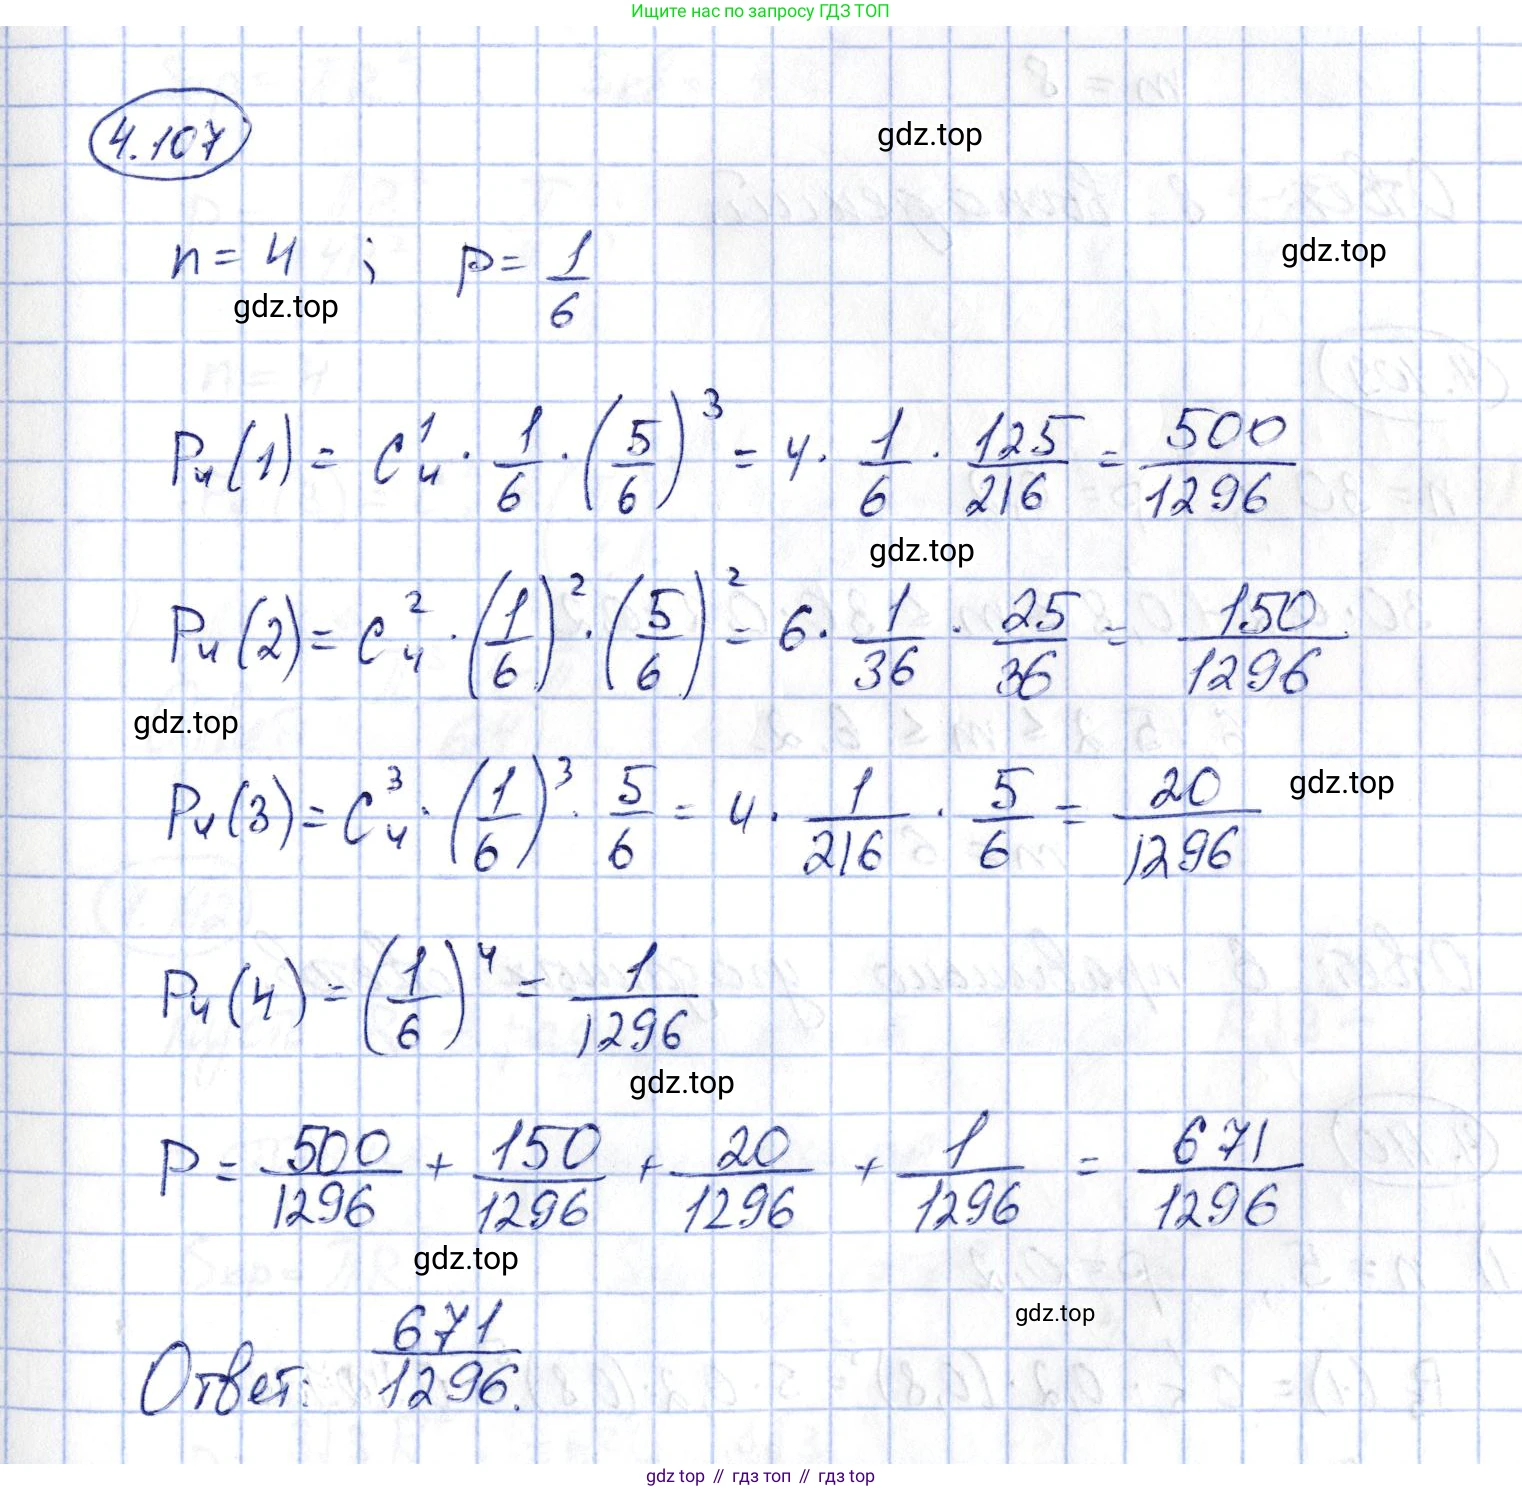 Ищите нас по запросу ГДЗ ТОП
4.107
gdz.top
n = 4 ; p = 1/6
gdz.top
gdz.top
P₄(1) = C₄¹ · 1/6 · (5/6)³ = 4 · 1/6 · 125/216 = 500/1296
gdz.top
P₄(2) = C₄² · (1/6)² · (5/6)² = 6 · 1/36 · 25/36 = 150/1296
gdz.top
P₄(3) = C₄³ · (1/6)³ · 5/6 = 4 · 1/216 · 5/6 = 20/1296
gdz.top
P₄(4) = (1/6)⁴ = 1/1296
gdz.top
P = 500/1296 + 150/1296 + 20/1296 + 1/1296 = 671/1296
gdz.top
gdz.top
Ответ: 671/1296.
gdz top // гдз топ // гдз top